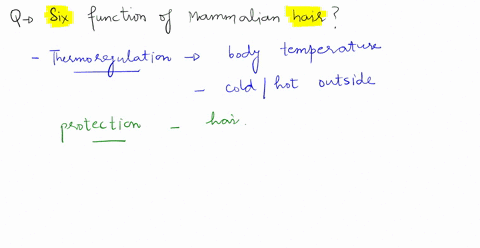 Q→ Six function of Mammalian hair?
- Thermoregulation → body temperature
- cold/hot outside
protection - hai.